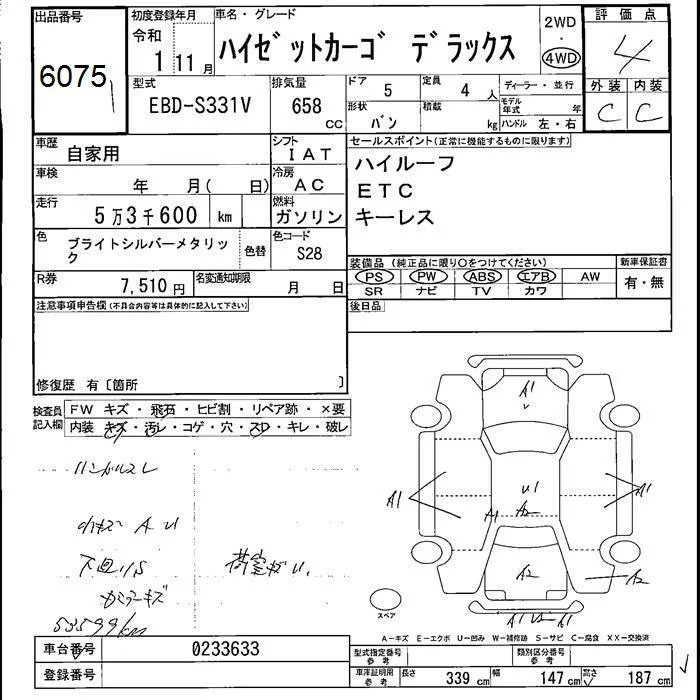 出品番号
6075
初度登録年月
令和
1 11月
車名・グレード
ハイゼットカーゴ デラックス
2WD
・
4WD
評価点
4
外装 内装
C C
型式
EBD-S331V
排気量
658
cc
ドア
5
定員
4 人
ディーラー・並行
形状
バン
積載
kg
モデル年式
年
ハンドル 左・右
車歴
自家用
シフト
IAT
車検
年 月( 日)
冷房
AC
走行
5万3千600 km
燃料
ガソリン
色
ブライトシルバーメタリック
色替
色コード
S28
R券
7,510円
名変通知期限
月 日
セールスポイント(正常に機能するものに限ります)
ハイルーフ
ETC
キーレス
装備品(純正品に限り○をつけてください)
PS PW ABS エアB AW
SR ナビ TV カワ
新車保証書
有・無
後日品
注意事項申告欄(不具合内容等は具体的に記入して下さい)
修復歴 有〔箇所 〕
検査員記入欄
FW キズ・飛石・ヒビ割・リペア跡・×要
内装 キズ・汚レ・コゲ・穴・スレ・キレ・破レ
ハンドルスレ
小キズ A U
下回りS
カミラーキズ
53599km
A1
A1
A1
U1
A1 A2
A2
A2
スペア
A-キズ E-エクボ U-凹み W-補修跡 S-サビ C-腐食 XX-交換済
車台番号
0233633
登録番号
型式指定番号
参考
類別区分番号
参考
車庫証明用
参考
長さ
339 cm
幅
147 cm
高さ
187 cm